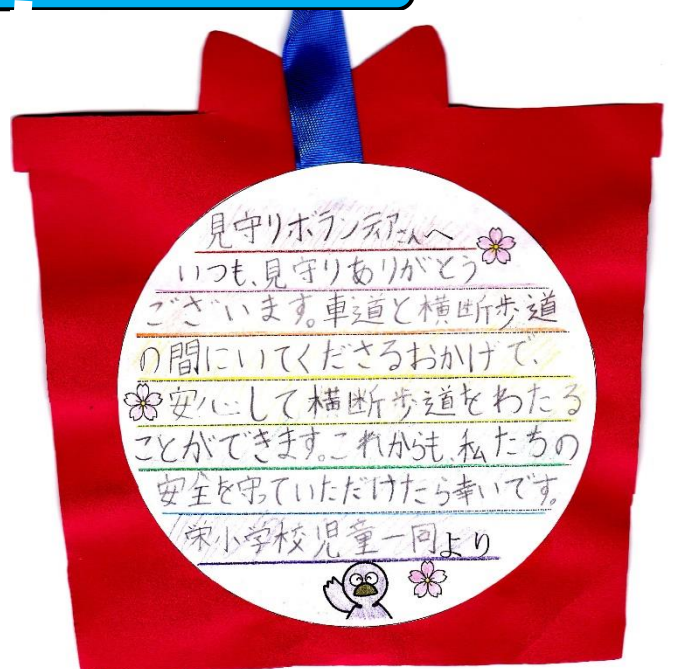 見守りボランティアさんへ
いつも、見守りありがとう
ございます。車道と横断歩道
の間にいてくださるおかげで、
安心して横断歩道をわたる
ことができます。これからも、私たちの
安全を守っていただけたら幸いです。
栄小学校児童一同より